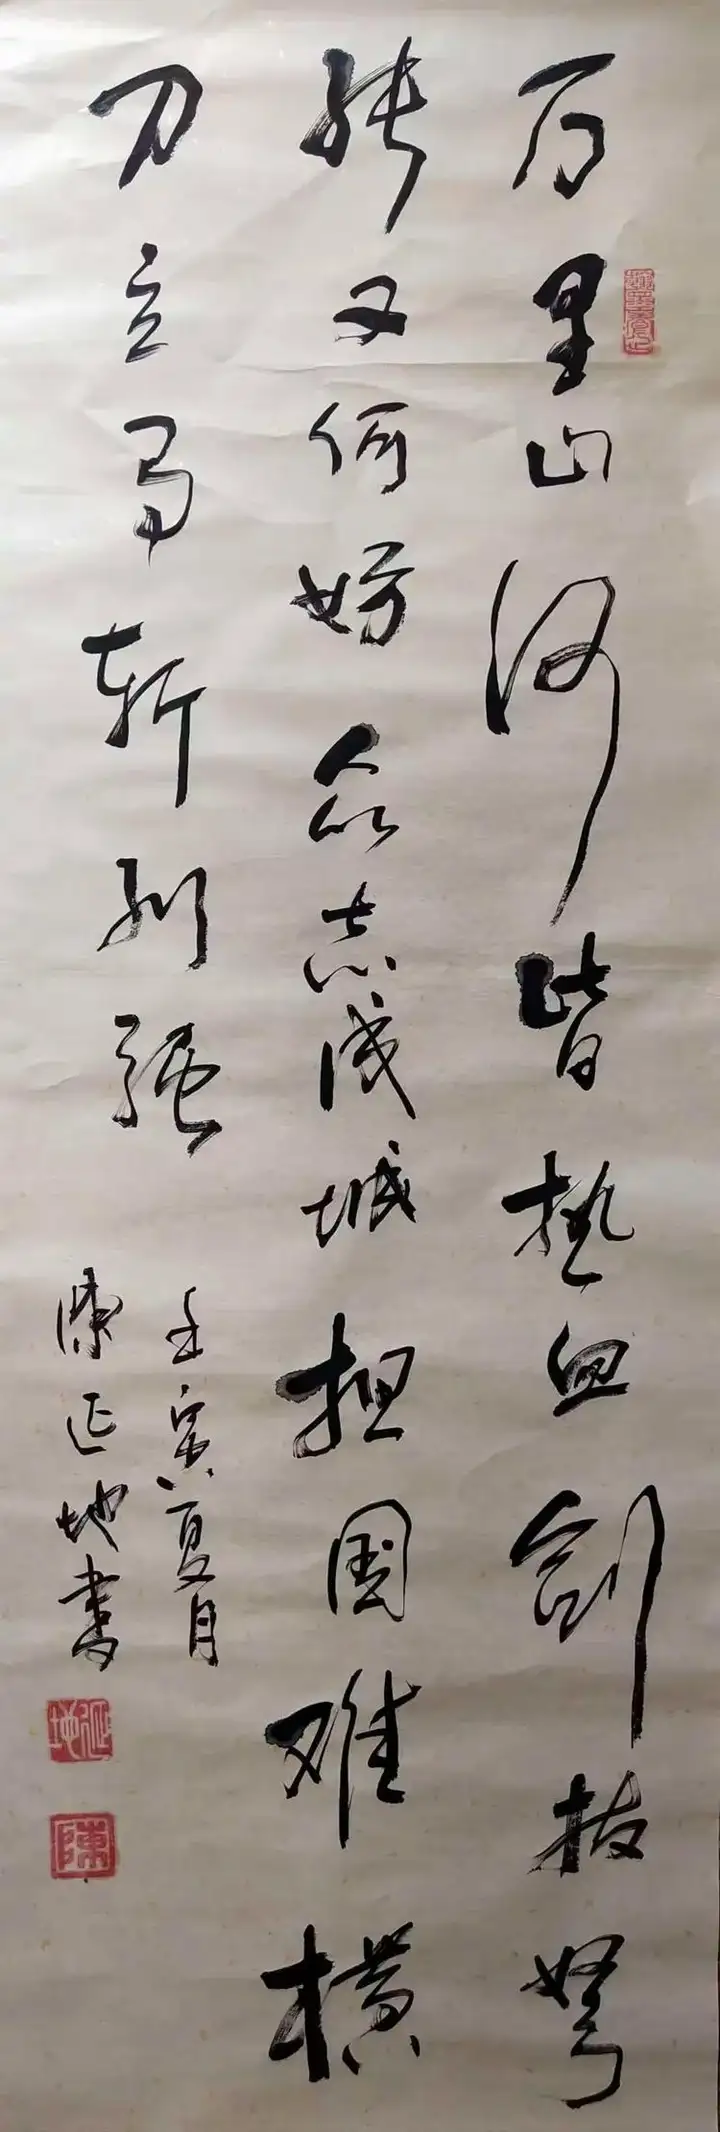 万里山河皆热血剑拔弩
张又何妨众志成城担国难横
刀立马斩列强
壬寅夏月
陈延地书
延地
陳